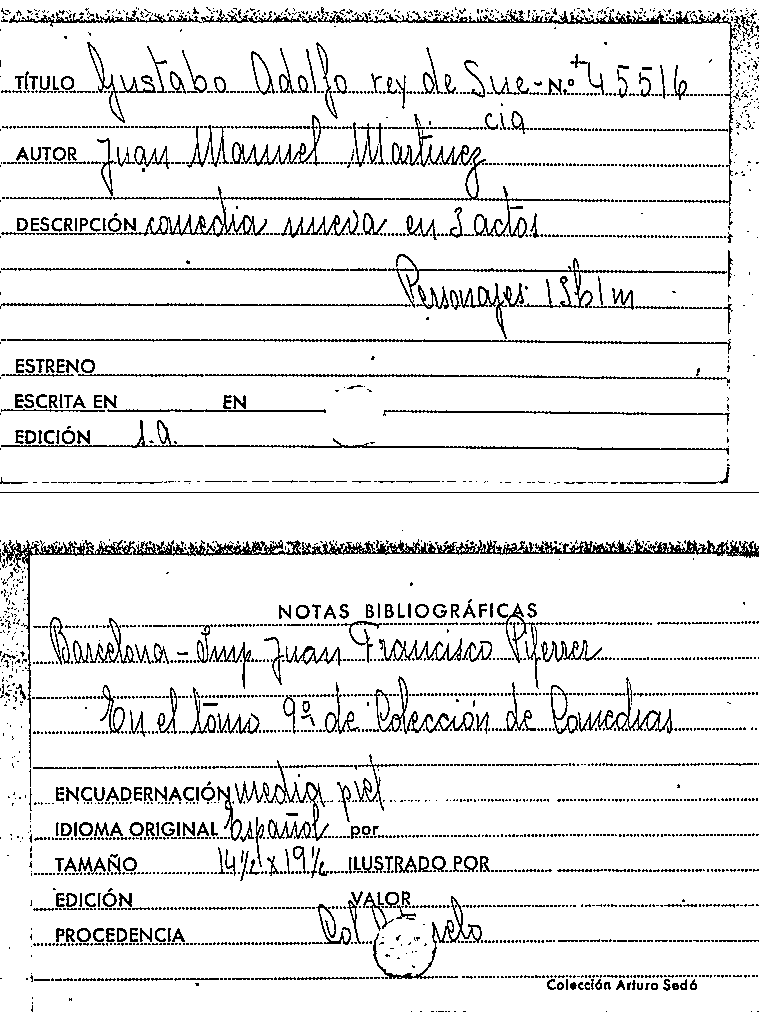 TÍTULO Gustabo Adolfo rey de Sue- N.º 45516
cia
AUTOR Juan Manuel Martinez
DESCRIPCIÓN comedia nueva en 3 actos
Personajes: 13h1m
ESTRENO
ESCRITA EN EN
EDICIÓN s.a.
NOTAS BIBLIOGRÁFICAS
Barcelona - Imp Juan Francisco Piferrer
En el tomo 9º de Colección de Comedias
ENCUADERNACIÓN media piel
IDIOMA ORIGINAL Español por
TAMAÑO 14½ x 19½ ILUSTRADO POR
EDICIÓN VALOR
PROCEDENCIA Col
Colección Arturo Sedó